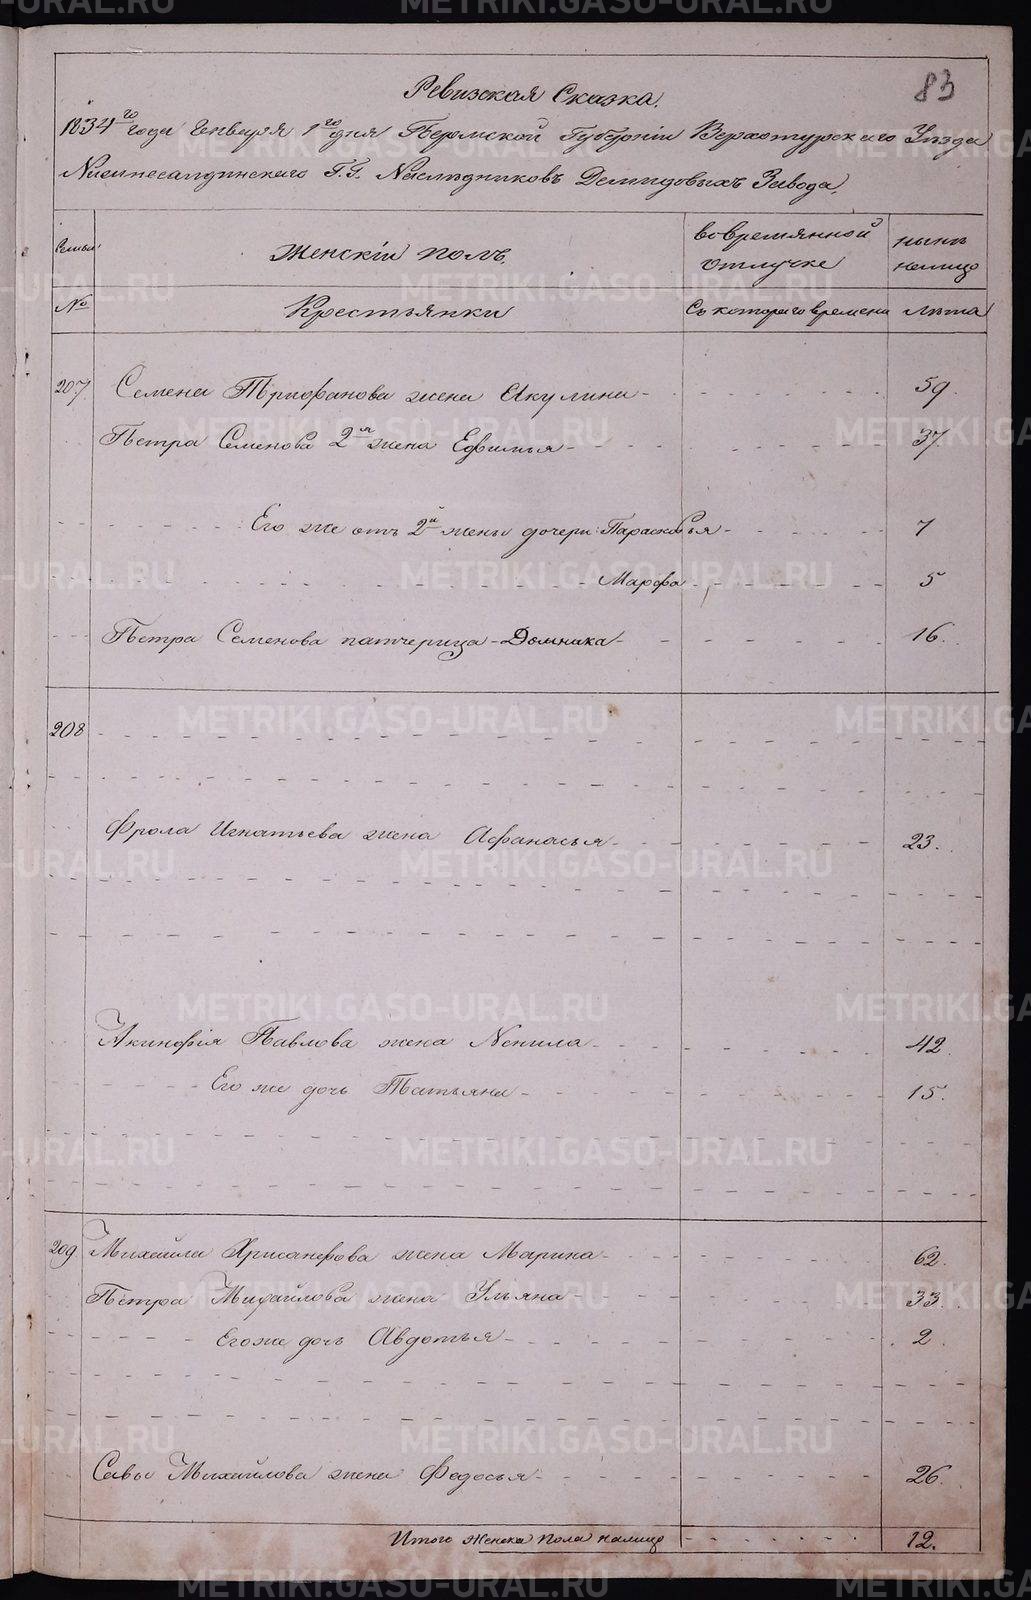 83
Ревизская Сказка.
1834го года Генваря 1го дня Пермской Губернии Верхотурскаго Уезда
Нижнесалдинскаго Г.Г. Наследниковъ Демидовыхъ Завода.
Семьи
Женскій полъ.
вовремянной отлучке
ныне налицо
№
Крестьянки
Съ котораго времени
Лета
207. Семена Трифанова жена Акулина 59.
Петра Семенова 2я жена Ефимья 37.
Его же отъ 2й жены дочери Парасковья 7
Марфа 5
Петра Семенова патчерица Домника 16.
208
Фрола Игнатьева жена Афанасья 23.
Акинфія Павлова жена Ненила 42.
Его же дочь Татьяна 15.
209 Михайла Хрисанфова жена Марина 62.
Петра Михайлова жена Ульяна 33.
Егоже дочь Авдотья 2.
Савы Михайлова жена Федосья 26.
Итого женска пола налицо 12.
METRIKI.GASO-URAL.RU